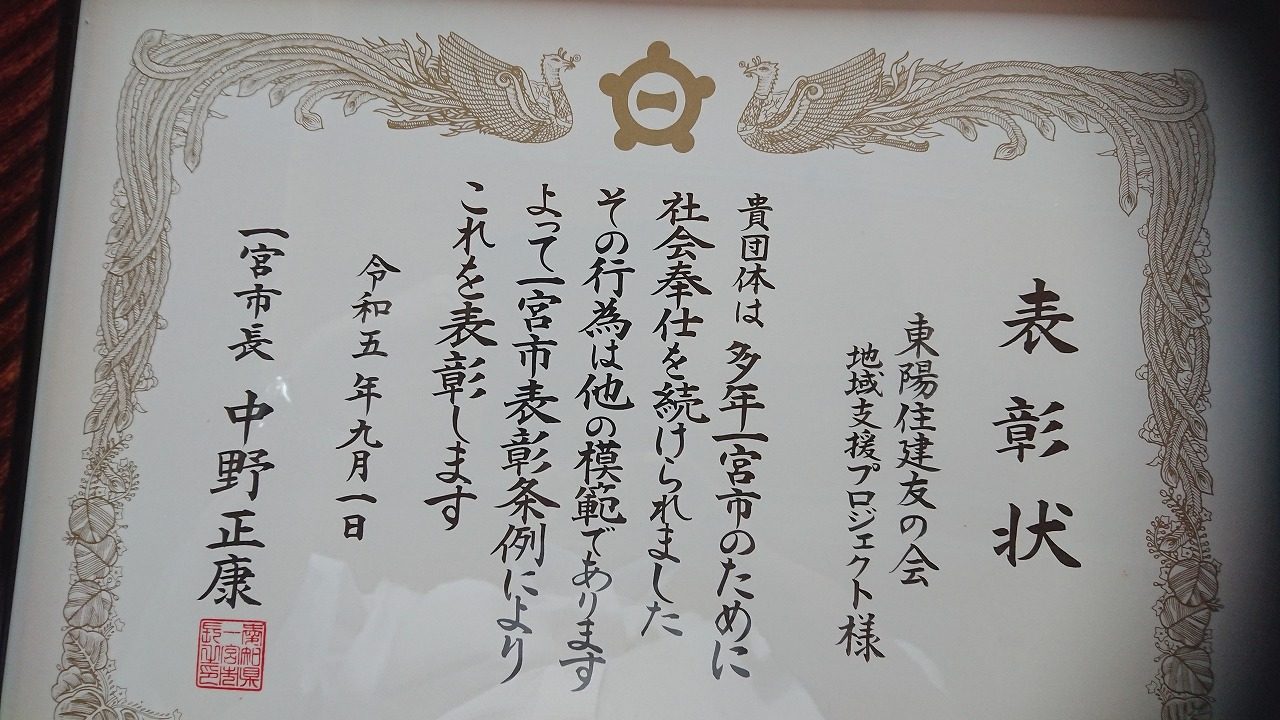 表彰状
東陽住建友の会
地域支援プロジェクト様
貴団体は多年一宮市のために
社会奉仕を続けられました
その行為は他の模範であります
よって一宮市表彰条例により
これを表彰します
令和五年九月一日
一宮市長 中野正康